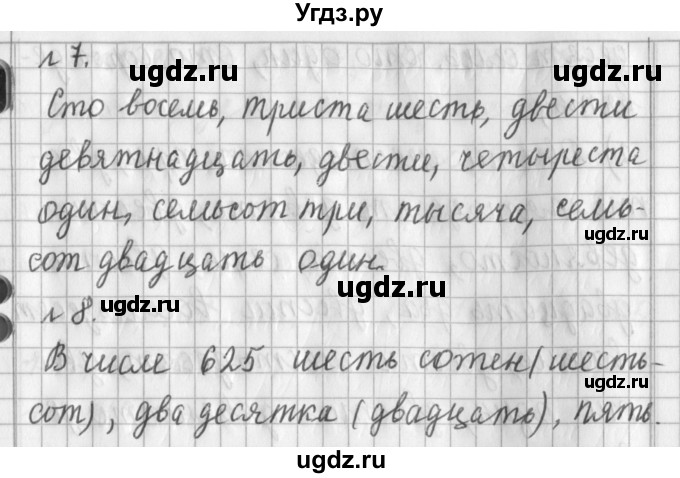 Угдз.ру
№ 7.
ugdz.ru ugdz.ru
Сто восемь, триста шесть, двести
девятнадцать, двести, четыреста
один, семьсот три, тысяча, семь-
ugdz.ru
сот двадцать один.
ugdz.ru ugdz.ru
№ 8.
В числе 625 шесть сотен (шесть-
ugdz.ru
сот), два десятка (двадцать), пять.
ugdz.ru